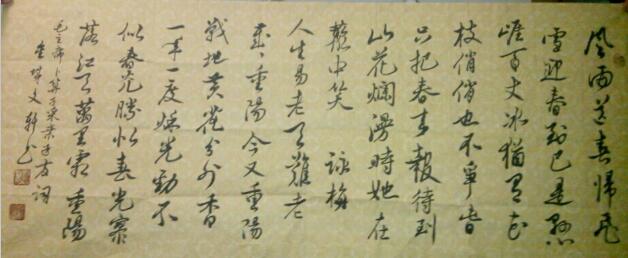 風雨送春歸飛
雪迎春到已是懸
崖百丈冰猶有花
枝俏俏也不爭春
只把春來報待到
山花爛漫時她在
叢中笑 詠梅
人生易老天難老
歲歲重陽今又重陽
戰地黃花分外香
一年一度秋光勁不
似春光勝似春光寥
落江天萬里霜 重陽
毛主席卜算子采桑子 詞
文軒书